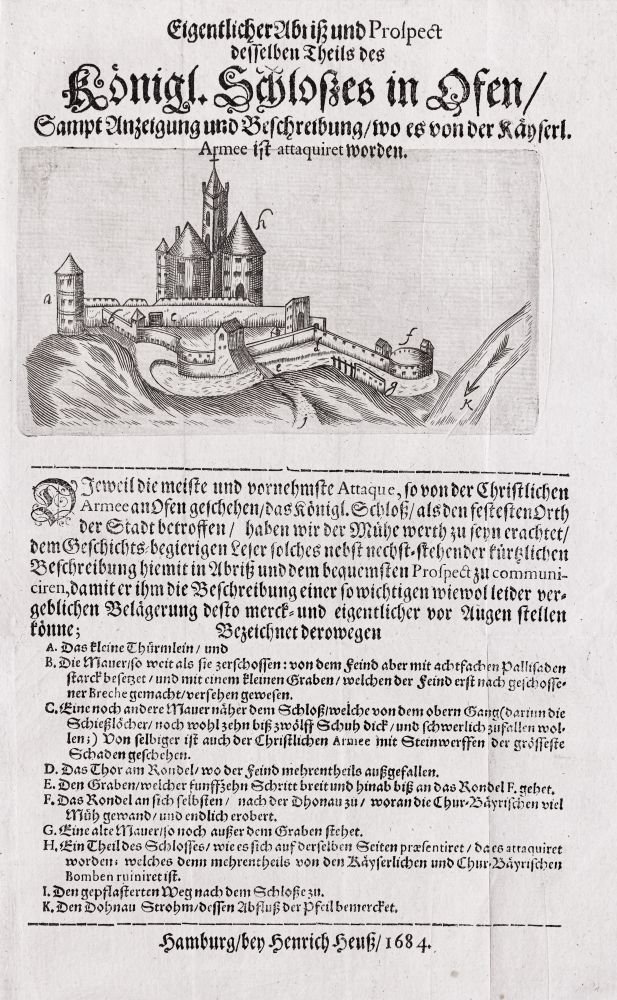 Eigentlicher Abriß und Prospect
desselben Theils des
Königl. Schloßes in Ofen/
Sampt Anzeigung und Beschreibung/wo es von der Käyserl.
Armee ist attaquiret worden.
h
a
b
c
d
e
f
g
i
K
DJeweil die meiste und vornehmste Attaque, so von der Christlichen
Armee an Ofen geschehen/das Königl. Schloß/als den festesten Orth
der Stadt betroffen/ haben wir der Mühe werth zu seyn erachtet/
dem Geschichts-begierigen Leser solches nebst nechst-stehender kürtzlichen
Beschreibung hiemit in Abriß und dem bequemsten Prospect zu communi-
ciren,damit er ihm die Beschreibung einer so wichtigen wiewol leider ver-
geblichen Belägerung desto merck- und eigentlicher vor Augen stellen
könne; Bezeichnet derowegen
A. Das kleine Thürmlein/ und
B. Die Mauer/so weit als sie zerschossen: von dem Feind aber mit achtfachen Pallisaden
starck besetzet/und mit einem kleinen Graben/welchen der Feind erst nach geschosse-
ner Breche gemacht/versehen gewesen.
C. Eine noch andere Mauer näher dem Schloß/welche von dem obern Gang(dariun die
Schießlöcher/noch wohl zehn biß zwölff Schuh dick/und schwerlich zufallen wol-
len;) Von selbiger ist auch der Christlichen Armee mit Steinwerffen der grösseste
Schaden geschehen.
D. Das Thor am Rondel/wo der Feind mehrentheils außgefallen.
E. Den Graben/welcher funffzehn Schritt breit und hinab biß an das Rondel F. gehet.
F. Das Rondel an sich selbsten/ nach der Dhonau zu/ woran die Chur-Bäyrischen viel
Müh gewand/und endlich erobert.
G. Eine alte Mauer/so noch außer dem Graben stehet.
H. Ein Theil des Schlosses/wie es sich auf derselben Seiten præsentiret/da es attaquiret
worden: welches denn mehrentheils von den Käyserlichen und Chur-Bäyrischen
Bomben ruiniret ist.
I. Den gepflasterten Weg nach dem Schloße zu.
K. Den Dohnau Strohm/dessen Abfluß der Pfeil bemercket.
Hamburg/bey Henrich Heuß/1684.